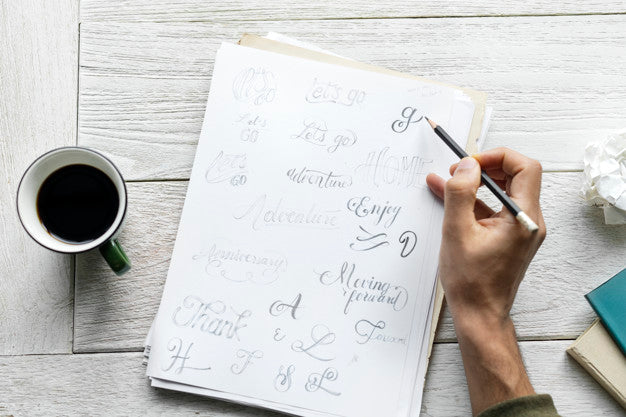 Let's go
g
Let's
GO
Let's go
Let's
GO
adventure
HOME
Adventure
Enjoy
D
Anniversary
Moving
forward
Thank
A
&
L
T
H
F
&
S
L